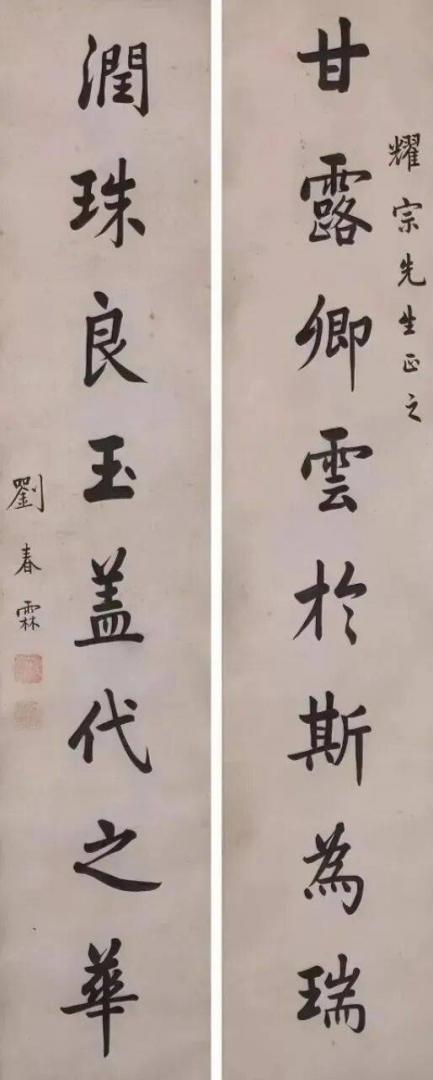 耀宗先生正之
甘露卿雲於斯為瑞
潤珠良玉盖代之華
劉春霖